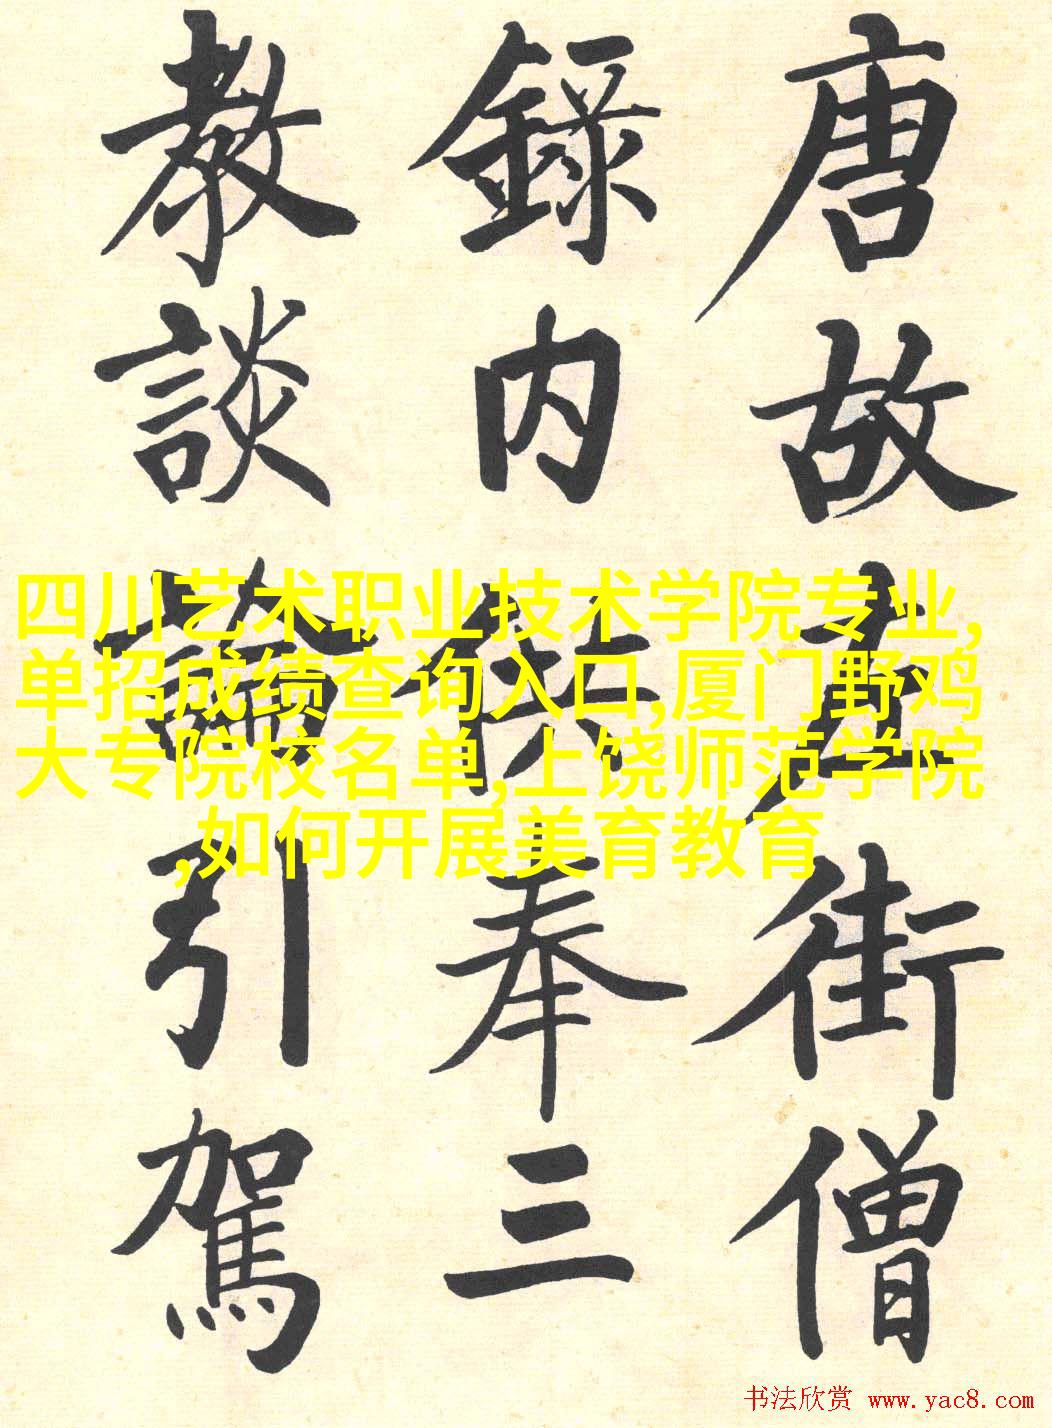 唐故左街僧
錄内供奉三
教談論引駕
四川艺术职业技术学院专业,
单招成绩查询入口,厦门野鸡
大专院校名单,上饶师范学院
,如何开展美育教育
书法欣赏 www.yac8.com